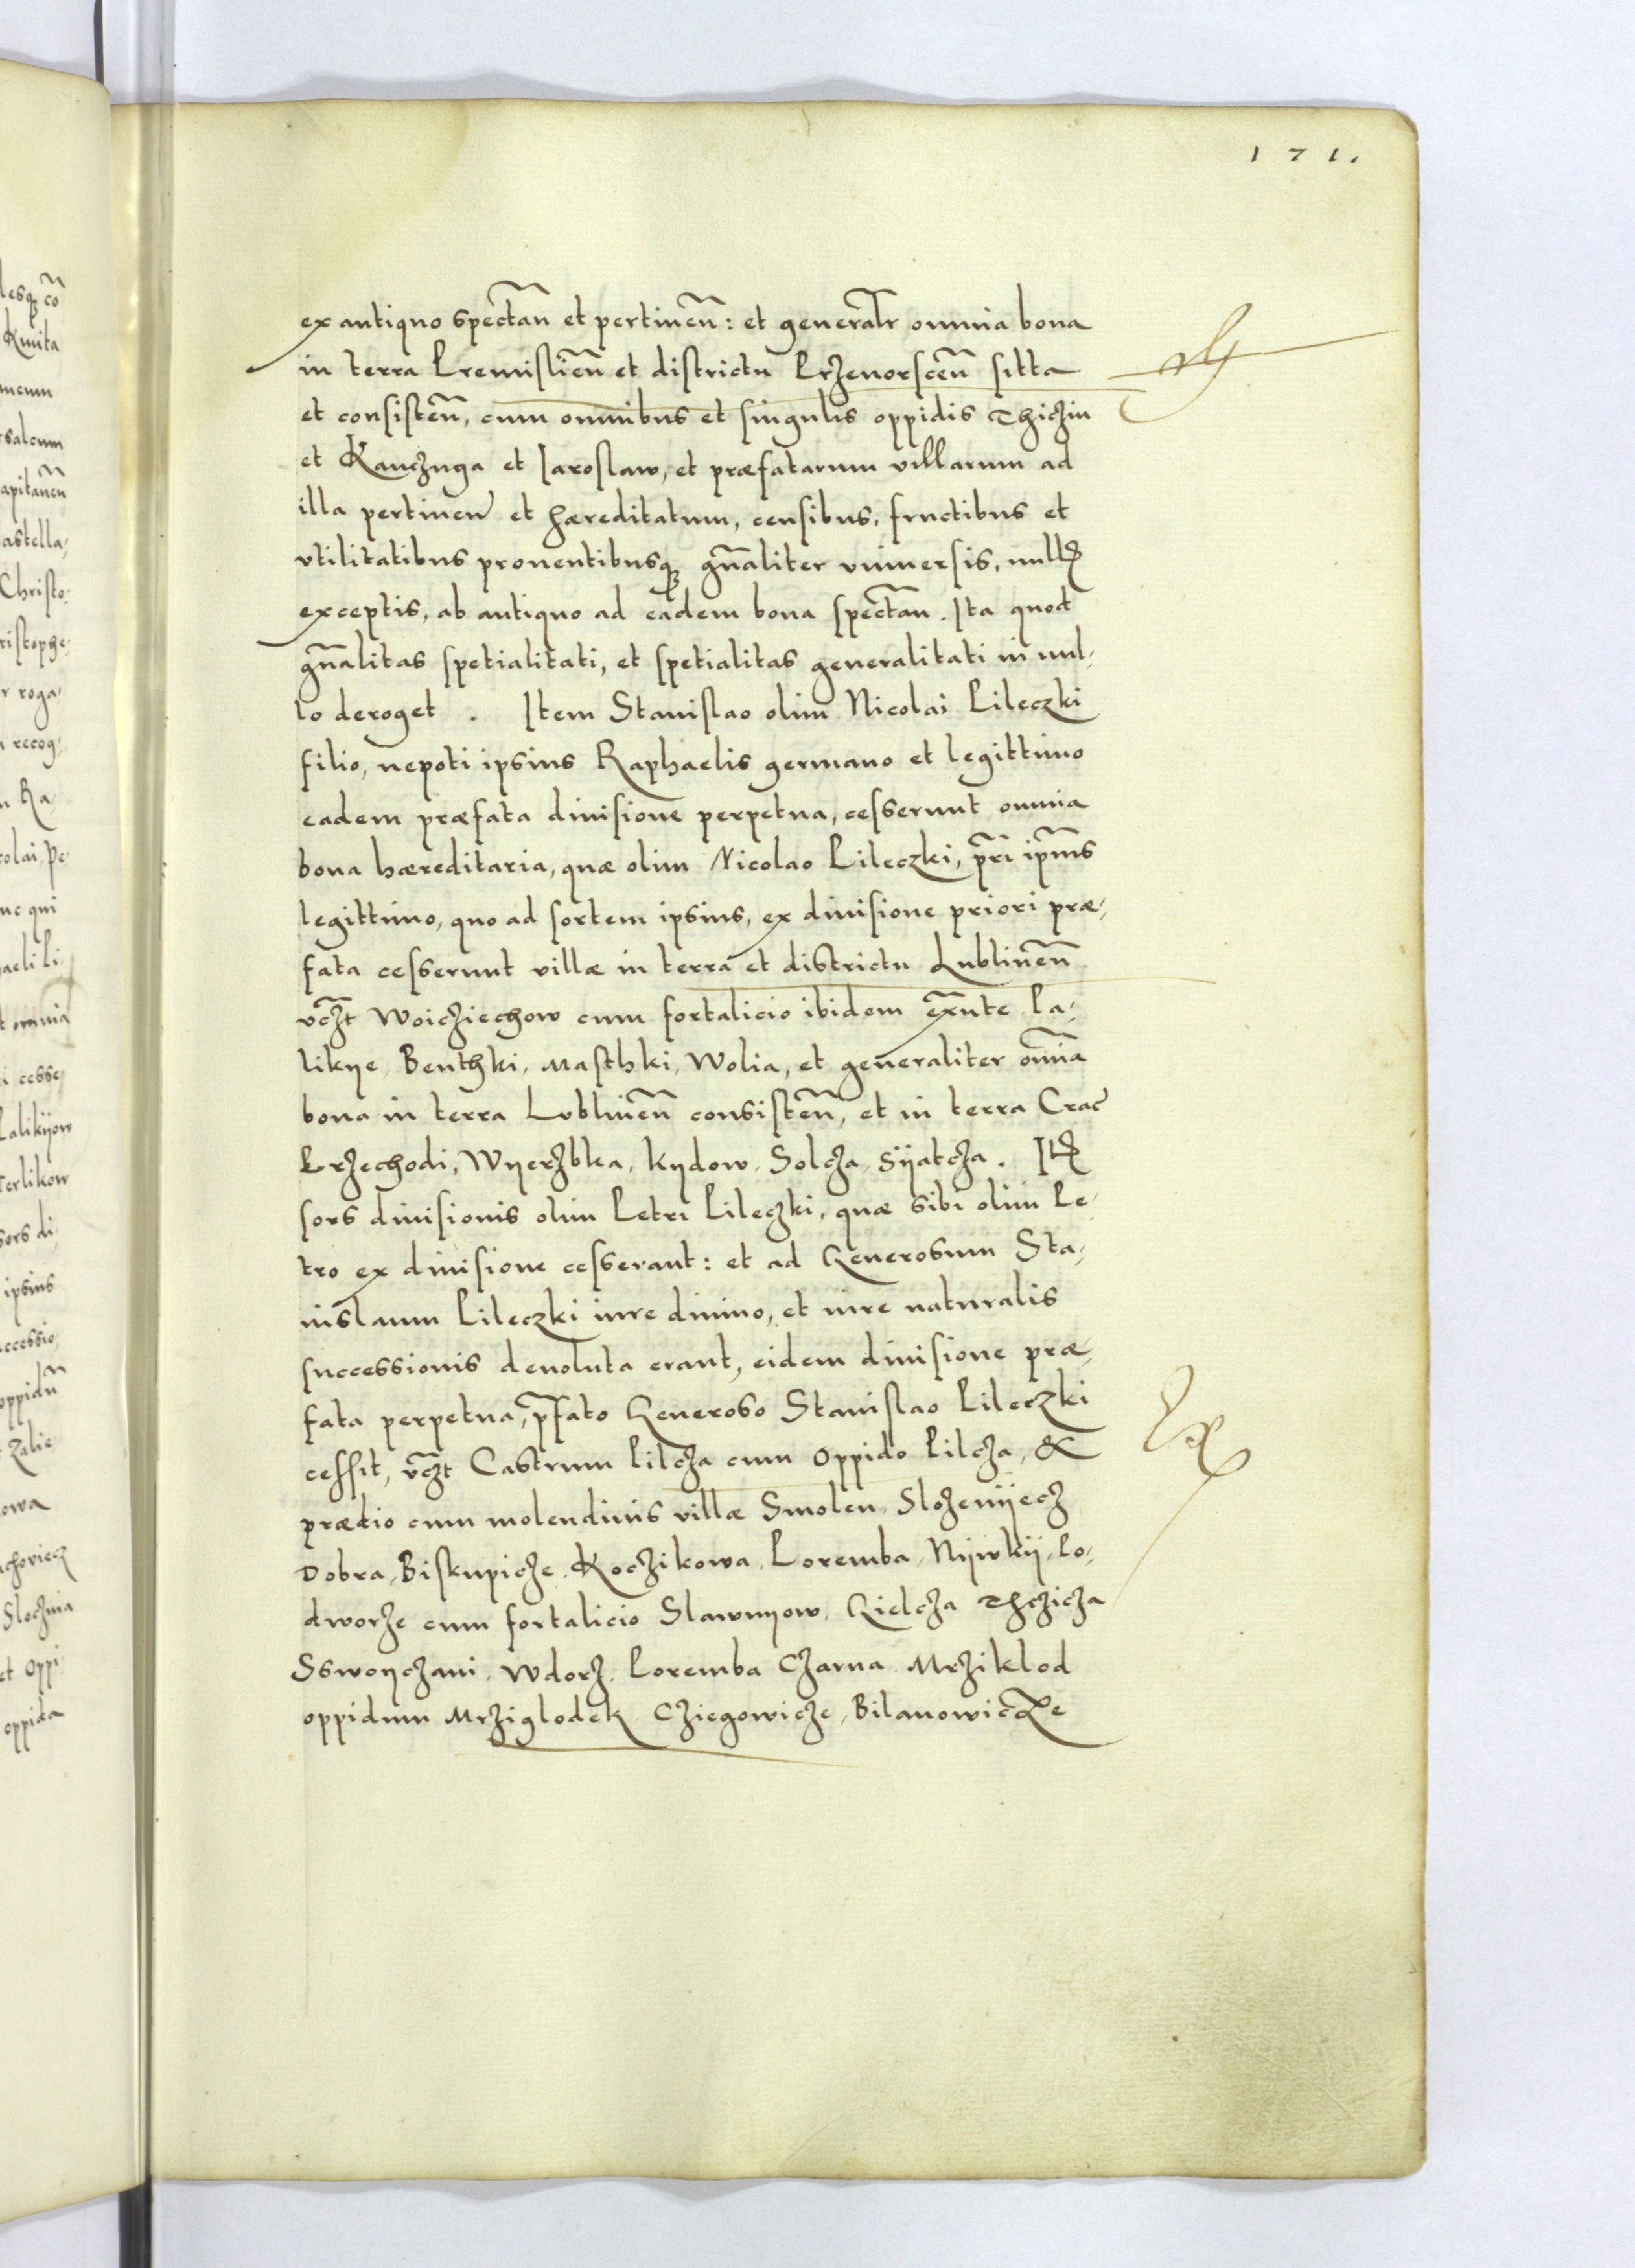 171.
ex antiquo spectan̄ et pertinen̄: et generalr̄ omnia bona
in terra Premislien̄ et districtu Przeuorscen̄ sitta
et consisten̄, cum omnibus et singulis oppidis Thiczin
et Kanczuga et Iaroslaw, et præfatarum villarum ad
illa pertinen̄ et hæreditatum, censibus, fructibus et
vtilitatibus prouentibusqȝ gn̄aliter vniuersis, nullꝭ
exceptis, ab antiquo ad eadem bona spectan̄. Ita quod
gn̄alitas spetialitati, et spetialitas generalitati in nul-
lo deroget. Item Stanislao olim Nicolai Pileczki
filio, nepoti ipsius Raphaelis germano et legittimo
eadem præfata diuisione perpetua, cesserunt omnia
bona hæreditaria, quæ olim Nicolao Pileczki, pr̄i ip̄ius
legittimo, quo ad sortem ipsius, ex diuisione priori præ-
fata cesserunt villæ in terra et districtu Lublinen̄
vcz̄t Woicziechow cum fortalicio ibidem exn̄te Pa-
likye, Benthki, Masthki, Wolia, et generaliter om̄ia
bona in terra Lublinen̄ consisten̄, et in terra Crac̄
Przechodi, Wyerzbka, Kydow, Solcza, Sÿatcza. Itꝭ
sors diuisionis olim Petri Pileczki, quæ sibi olim Pe-
tro ex diuisione cesserant: et ad Generosum Sta-
nislaum Pileczki iure diuino, et iure naturalis
successionis deuoluta erant, eidem diuisione præ-
fata perpetua, p̄fato Generoso Stanislao Pileczki
cessit, vcz̄t Castrum Pilcza cum oppido Pilcza, &
prædio cum molendinis villæ Smolen, Slozenÿecz
Dobra, Biskupicze, Koczikowa, Poremba, Nÿwkÿ, Po-
dworze cum fortalicio Slawnyow, Gielcza Thczicza
Sswoyczani, Wdorz, Poremba Czarna, Mrziklod
oppidum Mrziglodek, Cziegowicze, Bilanowicze